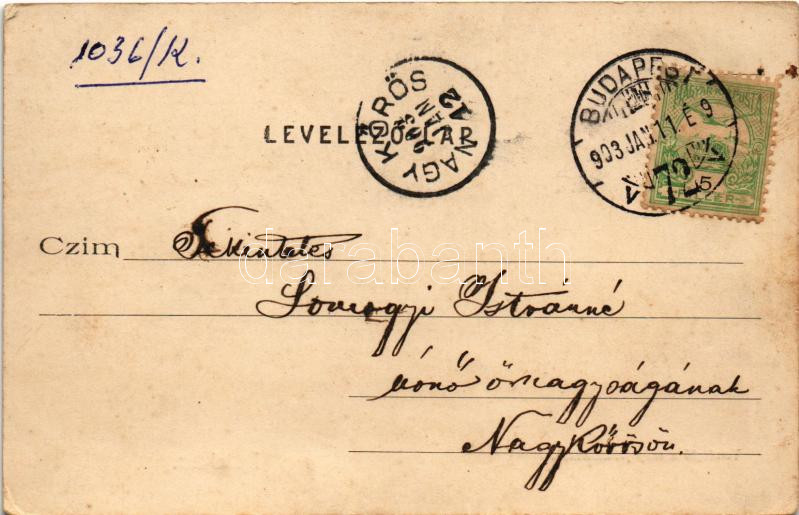 1036/K.
LEVELEZŐ-LAP
NAGY KŐRÖS
903
JAN
12
BUDAPEST
903 JAN. 11. É 9
V 72
5
Czim Tekintetes
Somogyi Istvánné
úrnő őnagyságának
Nagykőrösön.
darabanth